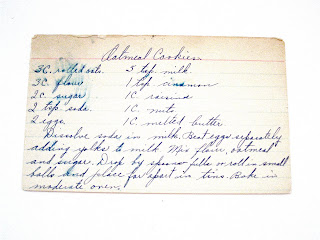 Oatmeal Cookies.
3C. rolled oats. 5 tsp. milk.
3C flour 1 tsp. cinnamon
2C. sugar 1C raisins
2 tsp soda. 1C nuts
2 eggs. 1C melted butter
Dissolve soda in milk. Beat eggs separately
adding yolks to milk. Mix flour, oatmeal
and sugar. Drop by spoon-fulls or roll in small
balls and place far apart in tins. Bake in
moderate oven.